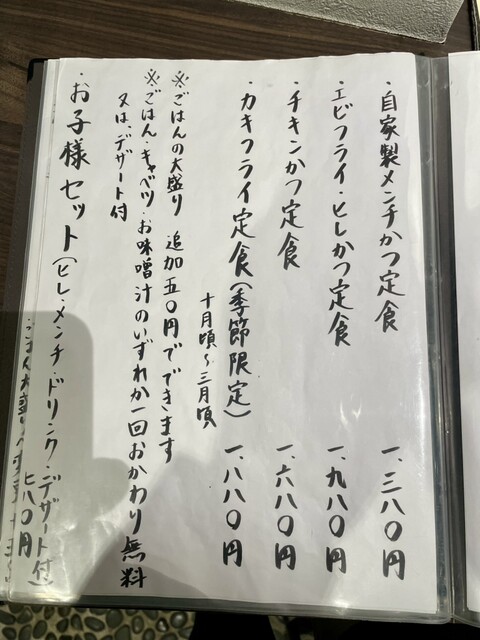 ・自家製メンチかつ定食 一、三八〇円
・エビフライ・ヒレかつ定食 一、九八〇円
・チキンかつ定食 一、六八〇円
・カキフライ定食(季節限定) 一、八八〇円
十月頃～三月頃
※ごはんの大盛り 追加五〇円でできます
※ごはん・キャベツ・お味噌汁のいずれか一回おかわり無料
又は、デザート付
・お子様セット(ヒレ・メンチ・ドリンク・デザート付)
七八〇円